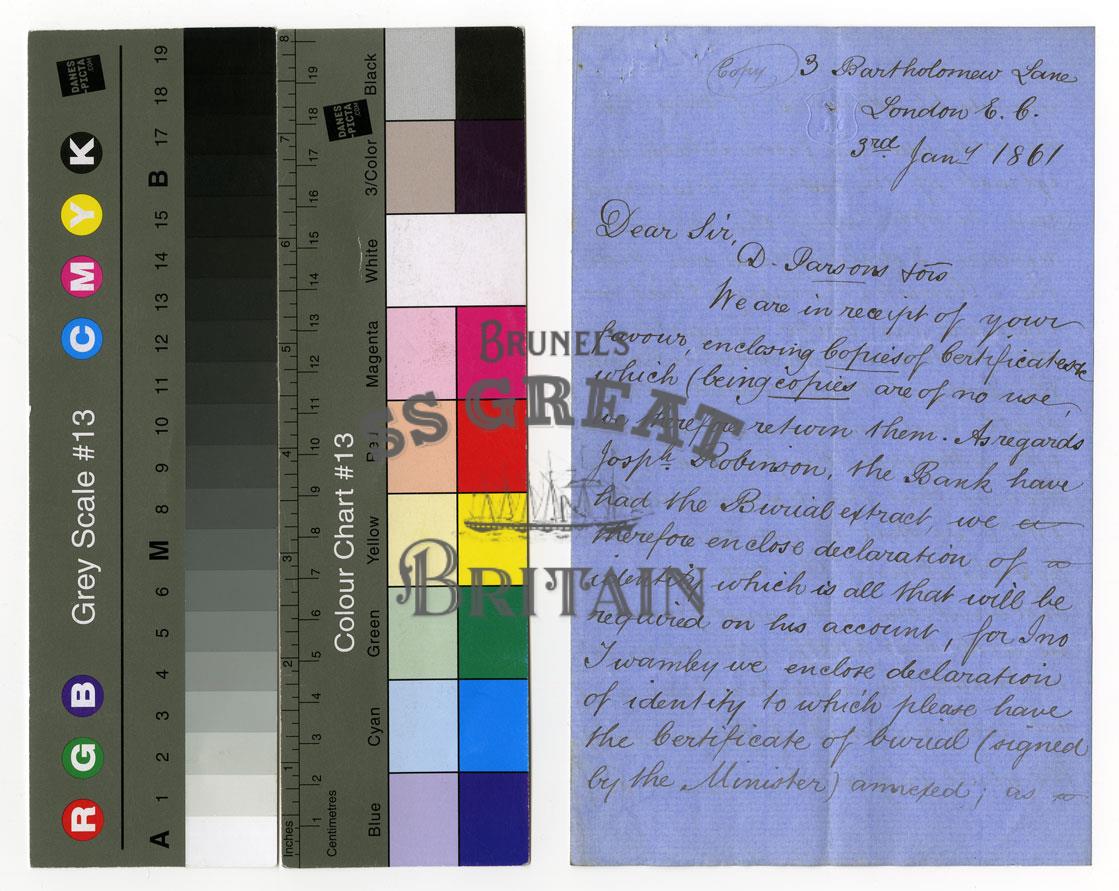 Grey Scale #13
DANES
-PICTA
.COM
R G B C M Y K
A 1 2 3 4 5 6 M 8 9 10 11 12 13 14 15 B 17 18 19
Colour Chart #13
DANES
-PICTA
.COM
Inches 1 2 3 4 5 6 7 8
Centimetres 1 2 3 4 5 6 7 8 9 10 11 12 13 14 15 16 17 18 19
Blue Cyan Green Yellow Red Magenta White 3/Color Black
BRUNEL'S
SS GREAT
BRITAIN
Copy
3 Bartholomew Lane
London E. C.
3rd Jany 1861
Dear Sir,
D. Parsons &ors
We are in receipt of your
favour, enclosing Copies of Certificates
which (being copies are of no use,
we therefore return them. As regards
Josph Robinson, the Bank have
had the Burial extract we
therefore enclose declaration of
identity which is all that will be
required on his account, for Jno
Twamley we enclose declaration
of identity to which please have
the Certificate of burial (signed
by the Minister) annexed; as